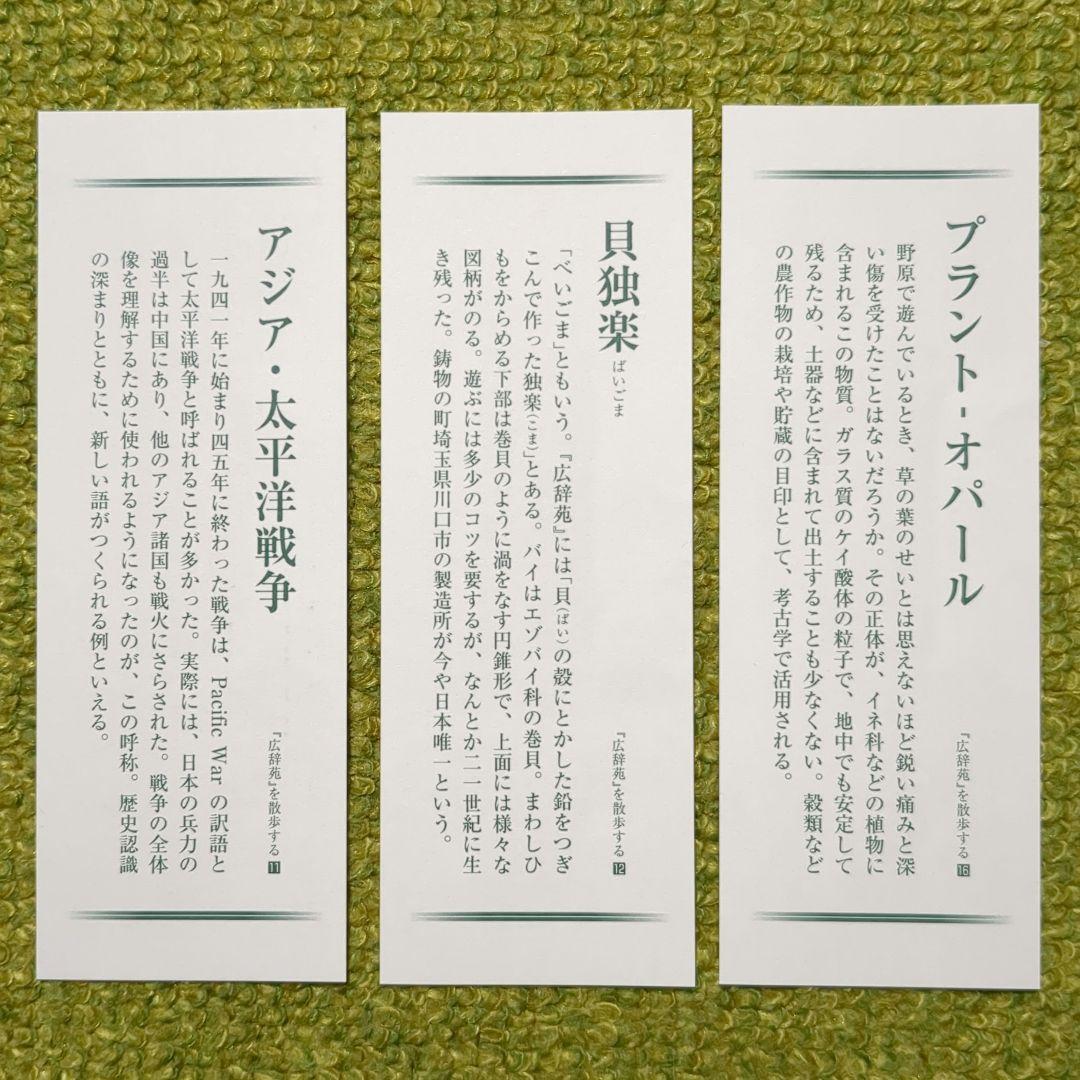 プラント-オパール
『広辞苑』を散歩する 16
野原で遊んでいるとき、草の葉のせいとは思えないほど鋭い痛みと深
い傷を受けたことはないだろうか。その正体が、イネ科などの植物に
含まれるこの物質。ガラス質のケイ酸体の粒子で、地中でも安定して
残るため、土器などに含まれて出土することも少なくない。穀類など
の農作物の栽培や貯蔵の目印として、考古学で活用される。
貝独楽 ばいごま
『広辞苑』を散歩する 12
「べいごま」ともいう。『広辞苑』には「貝(ばい)の殻にとかした鉛をつぎ
こんで作った独楽(こま)」とある。バイはエゾバイ科の巻貝。まわしひ
もをからめる下部は巻貝のように渦をなす円錐形で、上面には様々な
図柄がのる。遊ぶには多少のコツを要するが、なんとか二一世紀に生
き残った。鋳物の町埼玉県川口市の製造所が今や日本唯一という。
アジア・太平洋戦争
『広辞苑』を散歩する 11
一九四一年に始まり四五年に終わった戦争は、Pacific War の訳語と
して太平洋戦争と呼ばれることが多かった。実際には、日本の兵力の
過半は中国にあり、他のアジア諸国も戦火にさらされた。戦争の全体
像を理解するために使われるようになったのが、この呼称。歴史認識
の深まりとともに、新しい語がつくられる例といえる。